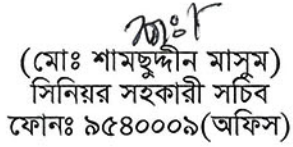 (মোঃ শামছুদ্দীন মাসুম)
সিনিয়র সহকারী সচিব
ফোনঃ ৯৫৪০০০৯(অফিস)